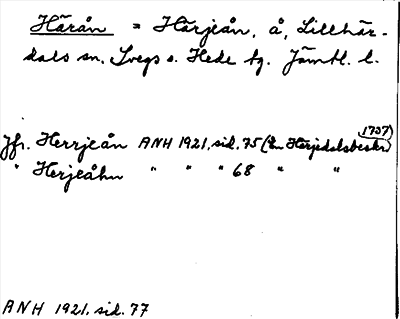 Härån = Härjeån, å, Lillhär-
dals sn. Svegs o. Hede tg. Jämtl. l.
1757)
Jfr. Herrjeån ANH 1921, sid. 75 (En Härjedalsbeskr.
" Herjeåhn " " " 68 " "
ANH 1921. sid. 77